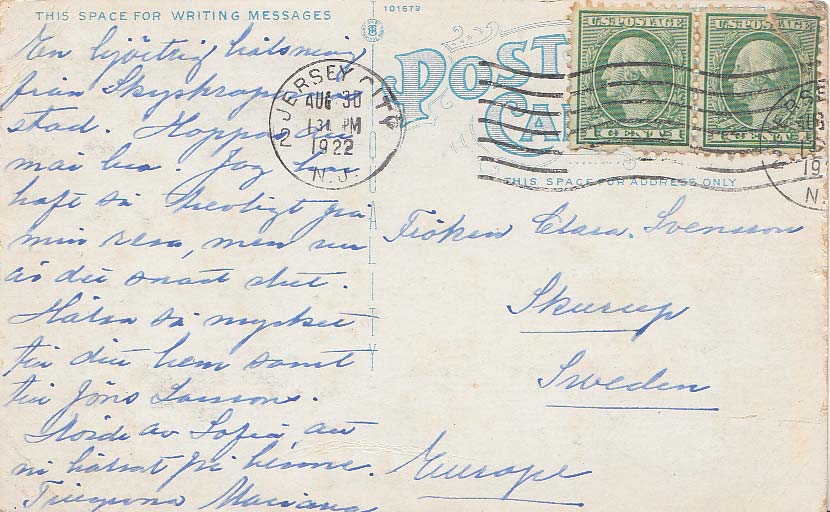 THIS SPACE FOR WRITING MESSAGES
En hjärtlig hälsning
från Skyskrapornas
stad. Hoppas du
mår bra. Jag har
haft så trevligt på
min resa, men nu
är det snart slut.
Hälsa så mycket
till ditt hem samt
till Jöns Larssons.
Hörde av Sofia, att
ni hälsat på hemme.
Tillgivna
101679
POST
CARD
THIS SPACE FOR ADDRESS ONLY
U.S. POSTAGE
1 CENT 1
U.S. POSTAGE
CENT 1
JERSEY CITY
AUG 30
PM
1922
N.J.
Fröken Clara Svensson
Skurup
Sweden
Europe